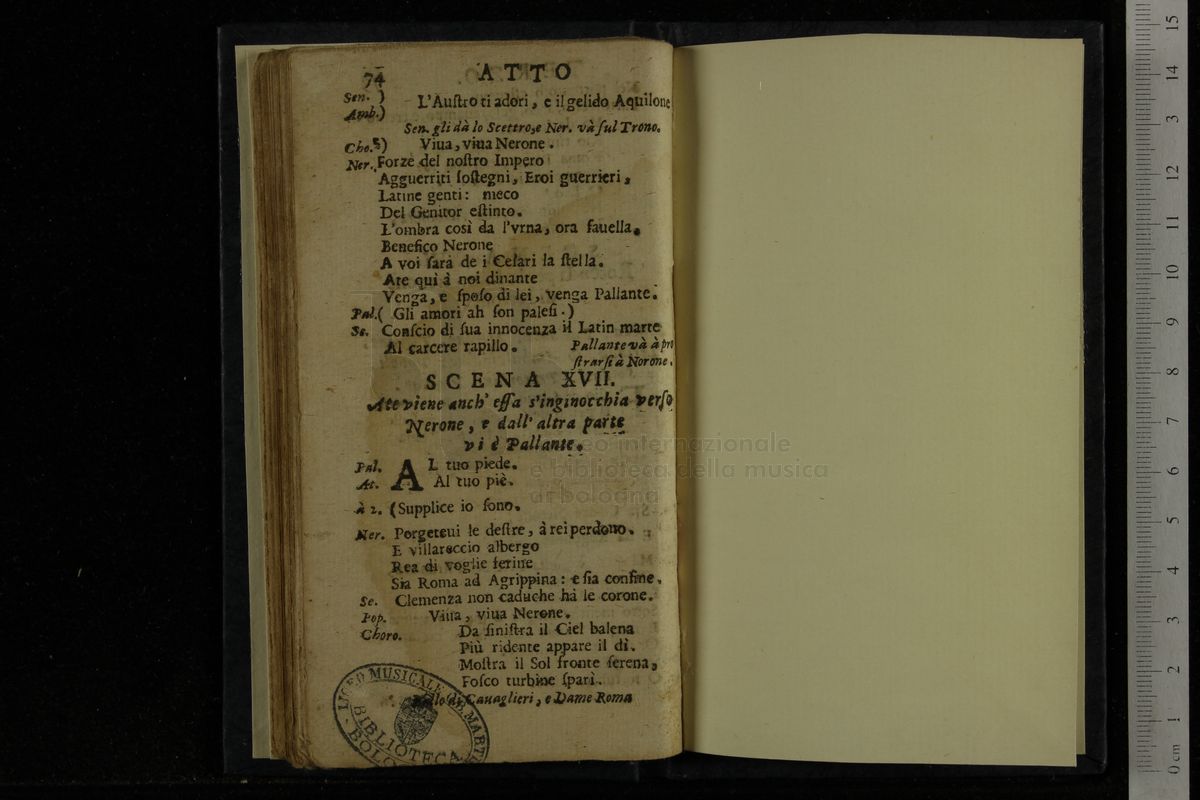 74 ATTO
Sen. ) L'Auſtro ti adori, e il gelido Aquilone
Amb.)
Sen. gli dà lo Scettro, e Ner. và ſul Trono.
Cho. ) Viua, viua Nerone.
Ner. Forze del noſtro Impero
Agguerriti ſoſtegni, Eroi guerrieri,
Latine genti: meco
Del Genitor eſtinto.
L'ombra così da l'vrna, ora fauella.
Benefico Nerone
A voi ſarà de i Ceſari la ſtella.
Ate quì à noi dinante
Venga, e ſpoſo di lei, venga Pallante.
Pal. ( Gli amori ah ſon paleſi. )
Se. Conſcio di ſua innocenza il Latin marte
Al carcere rapillo. Pallante và à pro
ſtrarſi à Norone.
SCENA XVII.
Ate viene anch' eſſa s'inginocchia verſo
Nerone, e dall' altra parte
vi è Pallante.
Pal. AL tuo piede.
At. Al tuo piè.
à 2. (Supplice io ſono.
Ner. Porgeteui le deſtre, à rei perdono.
E villareccio albergo
Rea di voglie ferine
Sia Roma ad Agrippina: e ſia confine.
Se. Clemenza non caduche hà le corone.
Pop. Viua, viua Nerone.
Choro. Da ſiniſtra il Ciel balena
Più ridente appare il dì.
Moſtra il Sol fronte ſerena,
Foſco turbine ſparì.
di Cauaglieri, e Dame Roma
LICEO MUSICALE G.B. MARTI
BIBLIOTECA
BOLO
museo internazionale
e biblioteca della musica
di bologna
0 cm 1 2 3 4 5 6 7 8 9 10 11 12 3 14 15